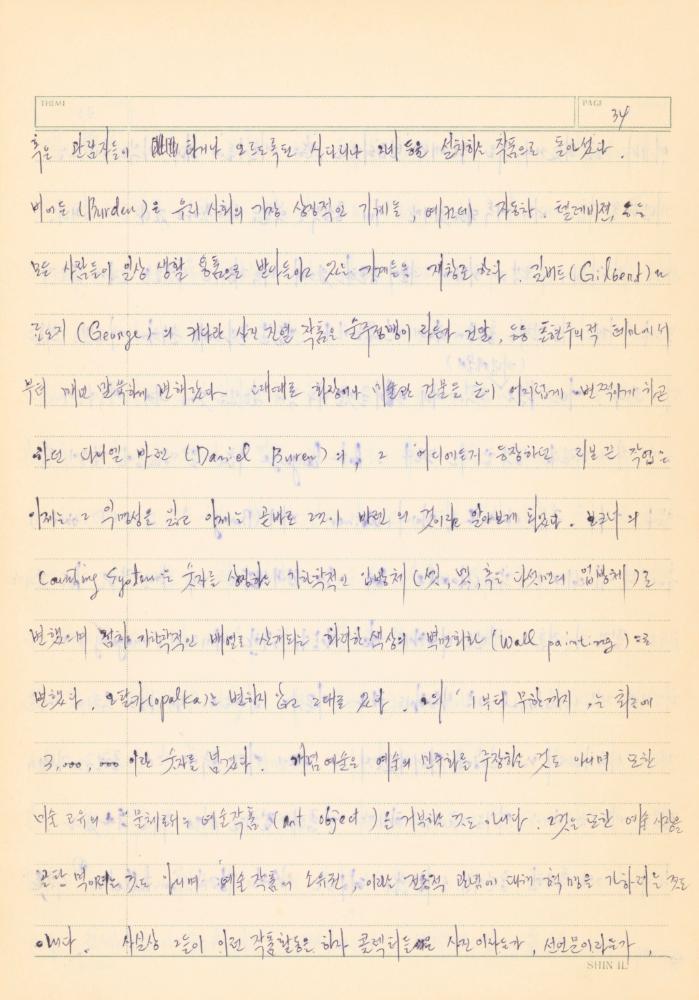 THEME
PAGE
34
혹은 관람자들이 타거나 오르도록된 사다리나 그네 등을 설치하는 작품으로 돌아섰다.
버어든 (Burden)은 우리 사회의 가장 상징적인 기계들, 예컨데 자동차, 텔레비젼, 등등
모든 사람들이 일상 생활 용품으로 받아들이고 있는 기계들을 재창조 한다. 길버트(Gilbert)와
죠오지 (George)의 커다란 사진 진열 작품은 술주정뱅이 라든가 건달, 등등 표현주의적 테마에서
부터 매우 말쑥하게 변해갔다. 때때로 화장이나 미술관 건물을 눈이 어지럽게 번쩍이게 하곤
하던 다니엘 바렌 (Daniel Buren)의, 그 어디에든지 등장하던 리본 끈 작업은
이제는 그 익명성을 잃고 이제는 곧바로 그것이 바렌의 것이라 알아보게 되었다. 보크너의
Counting System은 숫자를 상징하는 기하학적인 입방체 (셋, 넷, 혹은 다섯면의 입방체)로
변했으며 점차 기하학적인 배열로 전개되는 화려한 색상의 벽면회화 (Wall painting)으로
변했다. 오팔카(opalka)는 변하지 않고 그대로 있다. 그의 '1부터 무한까지'는 최근에
3,000,000 이란 숫자를 넘겼다. 개념예술은 예술의 민주화를 주장하는 것도 아니며 또한
미술 고유의 문체로되는 예술작품 (art object)을 거부하는 것도 아니다. 그것은 또한 예술시장을
곤란 먹이려는 것도 아니며 '예술 작품의 소유권' 이라는 전통적 관념에 대해 혁명을 가하려는 것도
아니다. 사실상 그들이 이런 작품활동을 하자 콜렉터들은 사진이라든가, 선언문이라든가,
SHIN IL